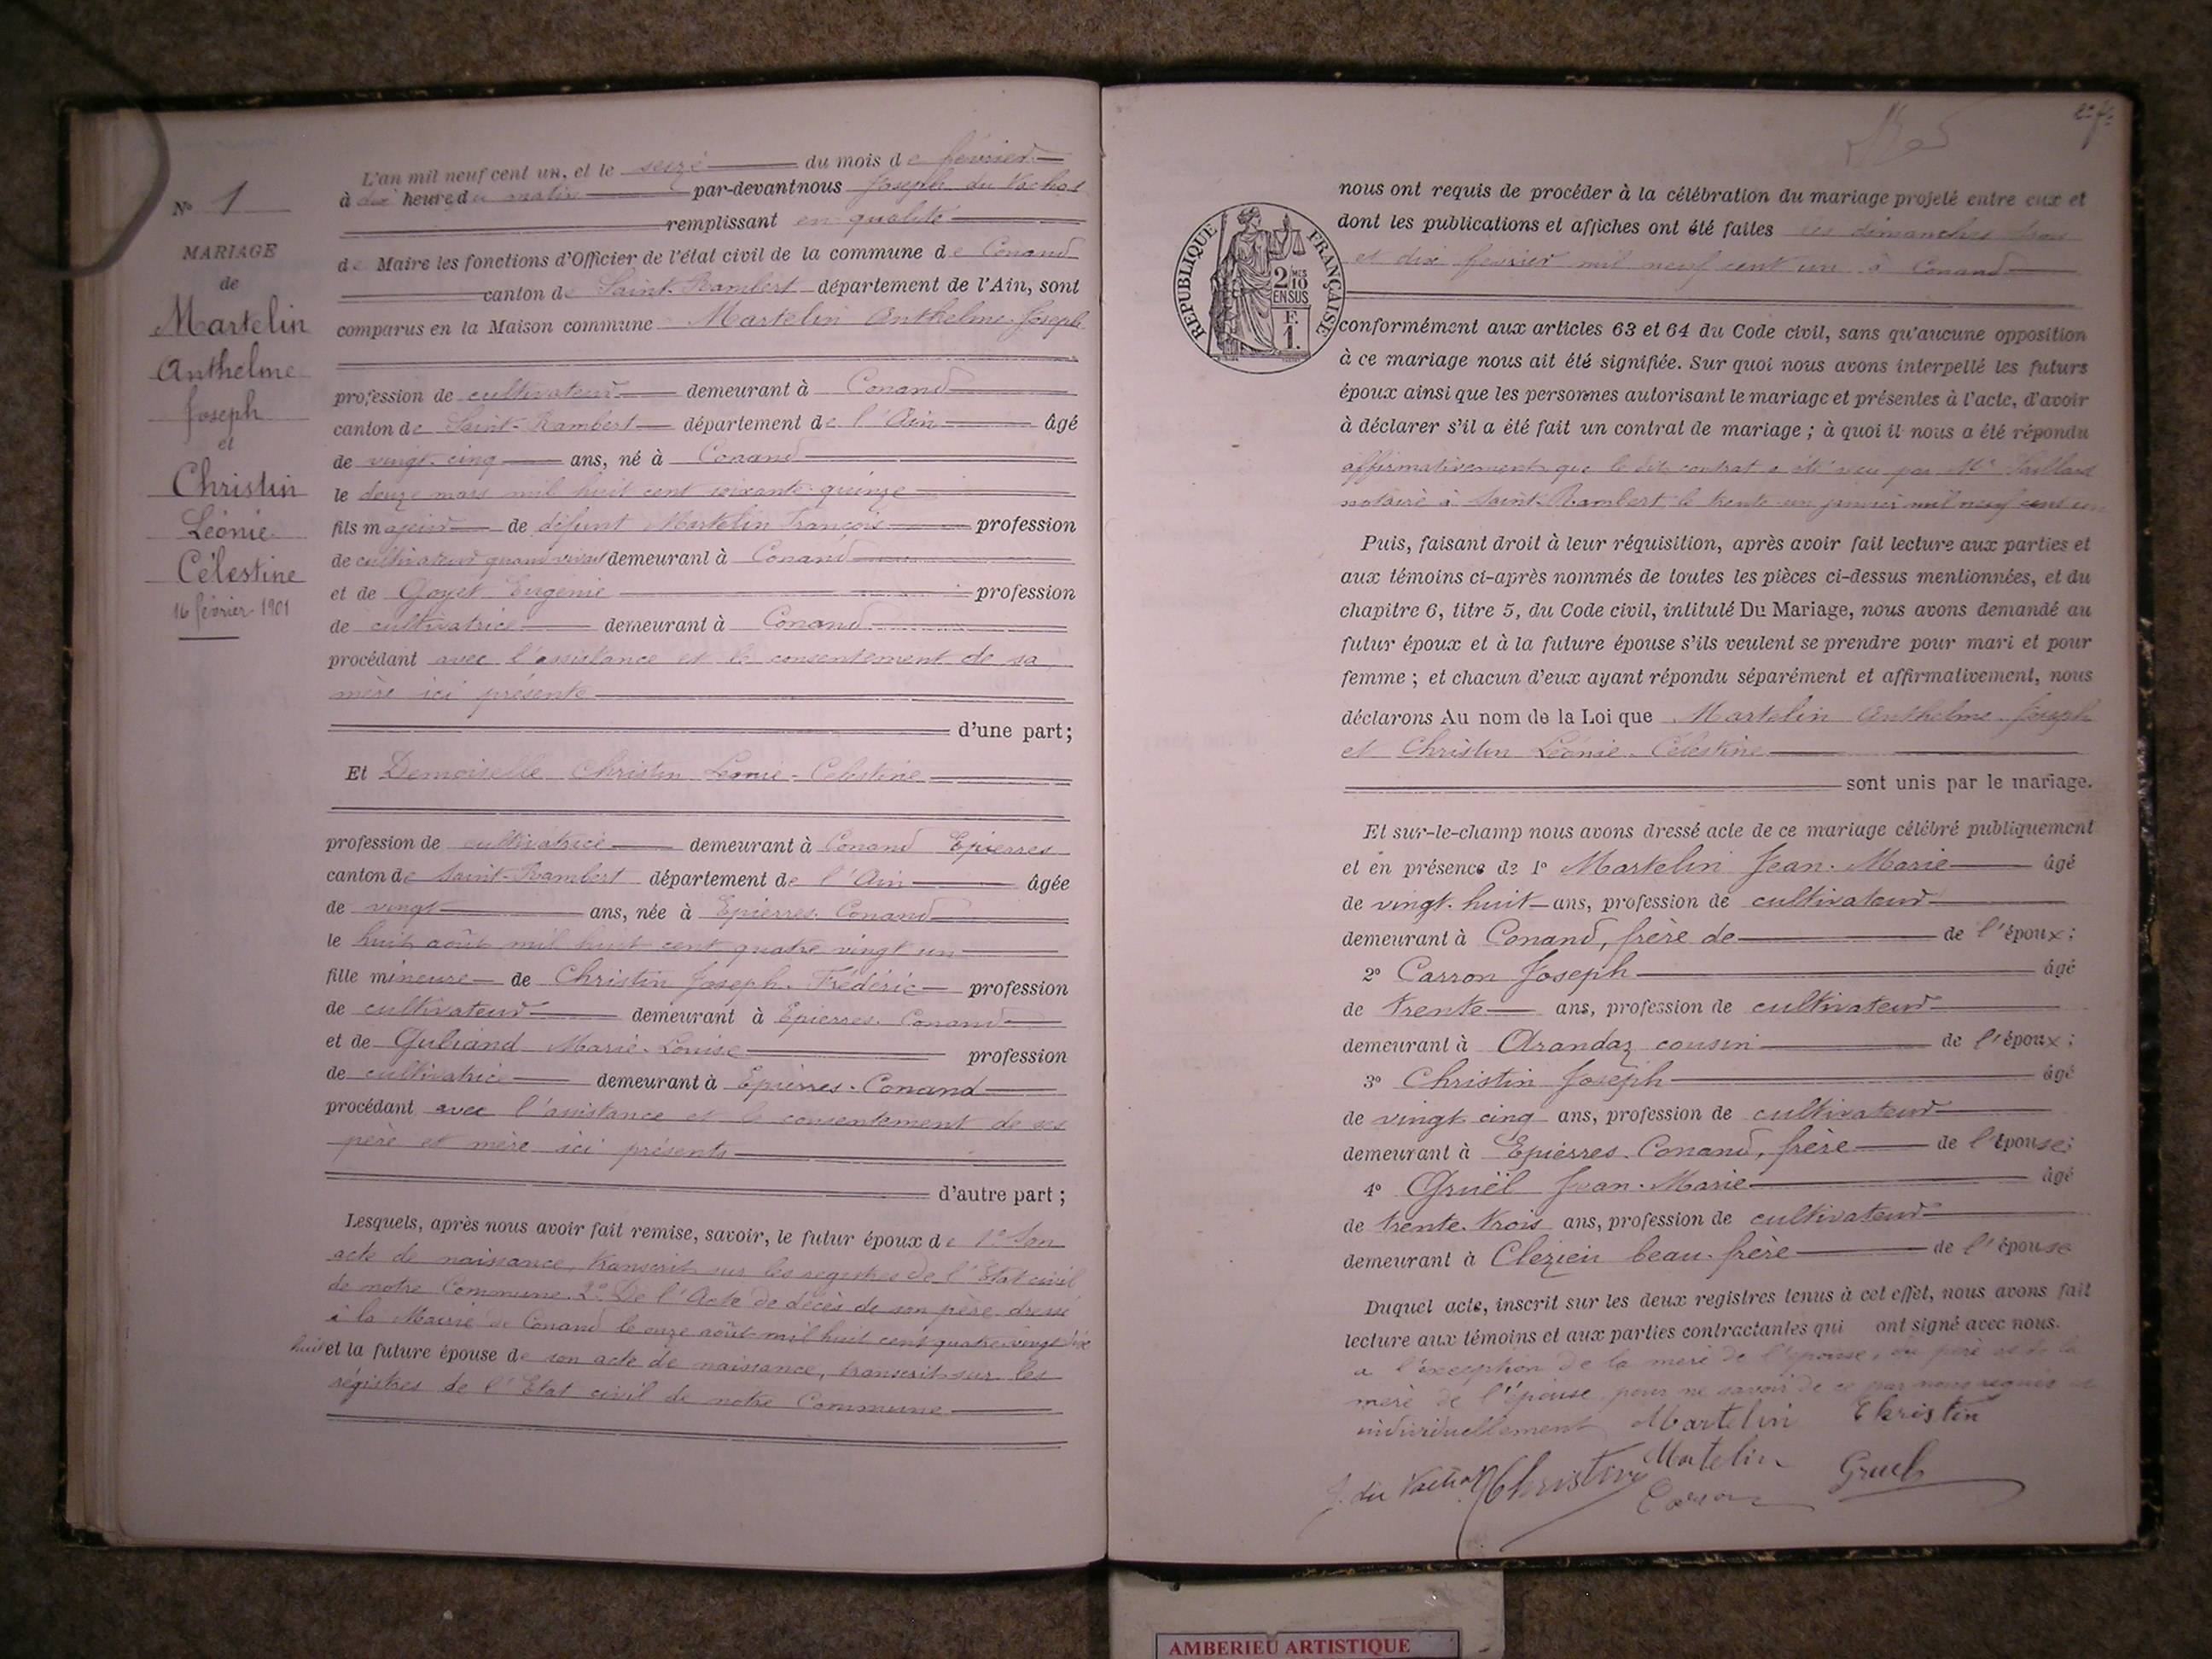 N° 1
MARIAGE
de
Martelin
Anthelme
Joseph
et
Christin
Léonie
Célestine
16 février 1901
L'an mil neuf cent un, et le seize du mois de février
à dix heures du matin par-devant nous Joseph du Vachat
remplissant en qualité
de Maire les fonctions d'Officier de l'état civil de la commune de Conand
canton de Saint-Rambert département de l'Ain, sont
comparus en la Maison commune Martelin Anthelme Joseph
profession de cultivateur demeurant à Conand
canton de Saint-Rambert département de l'Ain âgé
de vingt-cinq ans, né à Conand
le douze mars mil huit cent soixante-quinze
fils majeur de défunt Martelin François profession
de cultivateur quand vivait demeurant à Conand
et de Goyet Eugénie profession
de cultivatrice demeurant à Conand
procédant avec l'assistance et le consentement de sa
mère ici présente
d'une part;
Et Demoiselle Christin Léonie-Célestine
profession de cultivatrice demeurant à Conand Epierres
canton de Saint-Rambert département de l'Ain âgée
de vingt ans, née à Epierres. Conand
le huit août mil huit cent quatre vingt un
fille mineure de Christin Joseph. Frédéric profession
de cultivateur demeurant à Epierres. Conand
et de Marie-Louise profession
de cultivatrice demeurant à Epierres-Conand
procédant avec l'assistance et le consentement de ses
père et mère ici présents
d'autre part;
Lesquels, après nous avoir fait remise, savoir, le futur époux de 1° Son
acte de naissance, transcrit sur les registres de l'Etat civil
de notre Commune. 2° De l'Acte de décès de son père dressé
à la Mairie de Conand le onze août mil huit cent quatre-vingt dix
huit et la future épouse de son acte de naissance, transcrit sur les
régistres de l'Etat civil de notre Commune
2e f.
REPUBLIQUE FRANÇAISE
2/10 MES
EN SUS
F.
1.
nous ont requis de procéder à la célébration du mariage projeté entre eux et
dont les publications et affiches ont été faites les dimanches trois
et dix février mil neuf cent un à Conand
conformément aux articles 63 et 64 du Code civil, sans qu'aucune opposition
à ce mariage nous ait été signifiée. Sur quoi nous avons interpellé les futurs
époux ainsi que les personnes autorisant le mariage et présentes à l'acte, d'avoir
à déclarer s'il a été fait un contrat de mariage; à quoi il nous a été répondu
affirmativement que le dit contrat a été reçu par Me
notaire à Saint-Rambert le trente un janvier mil neuf cent un
Puis, faisant droit à leur réquisition, après avoir fait lecture aux parties et
aux témoins ci-après nommés de toutes les pièces ci-dessus mentionnées, et du
chapitre 6, titre 5, du Code civil, intitulé Du Mariage, nous avons demandé au
futur époux et à la future épouse s'ils veulent se prendre pour mari et pour
femme; et chacun d'eux ayant répondu séparément et affirmativement, nous
déclarons Au nom de la Loi que Martelin Anthelme-Joseph
et Christin Léonie-Célestine
sont unis par le mariage.
Et sur-le-champ nous avons dressé acte de ce mariage célébré publiquement
et en présence de 1° Martelin Jean-Marie âgé
de vingt-huit ans, profession de cultivateur
demeurant à Conand, frère de de l'époux;
2° Carron Joseph âgé
de trente ans, profession de cultivateur
demeurant à Arandaz cousin de l'époux;
3° Christin Joseph âgé
de vingt cinq ans, profession de cultivateur
demeurant à Epierres. Conand, frère de l'épouse;
4° Gruël Jean-Marie âgé
de trente-trois ans, profession de cultivateur
demeurant à Clezieu beau-frère de l'épouse
Duquel acte, inscrit sur les deux registres tenus à cet effet, nous avons fait
lecture aux témoins et aux parties contractantes qui ont signé avec nous.
a l'exception de la mère de l'épouse, du père et de la
mère de l'épouse pour ne savoir de ce par nous requis
individuellement Martelin Christin
J. du Vachat Christin Martelin Carron Gruel
AMBERIEU ARTISTIQUE